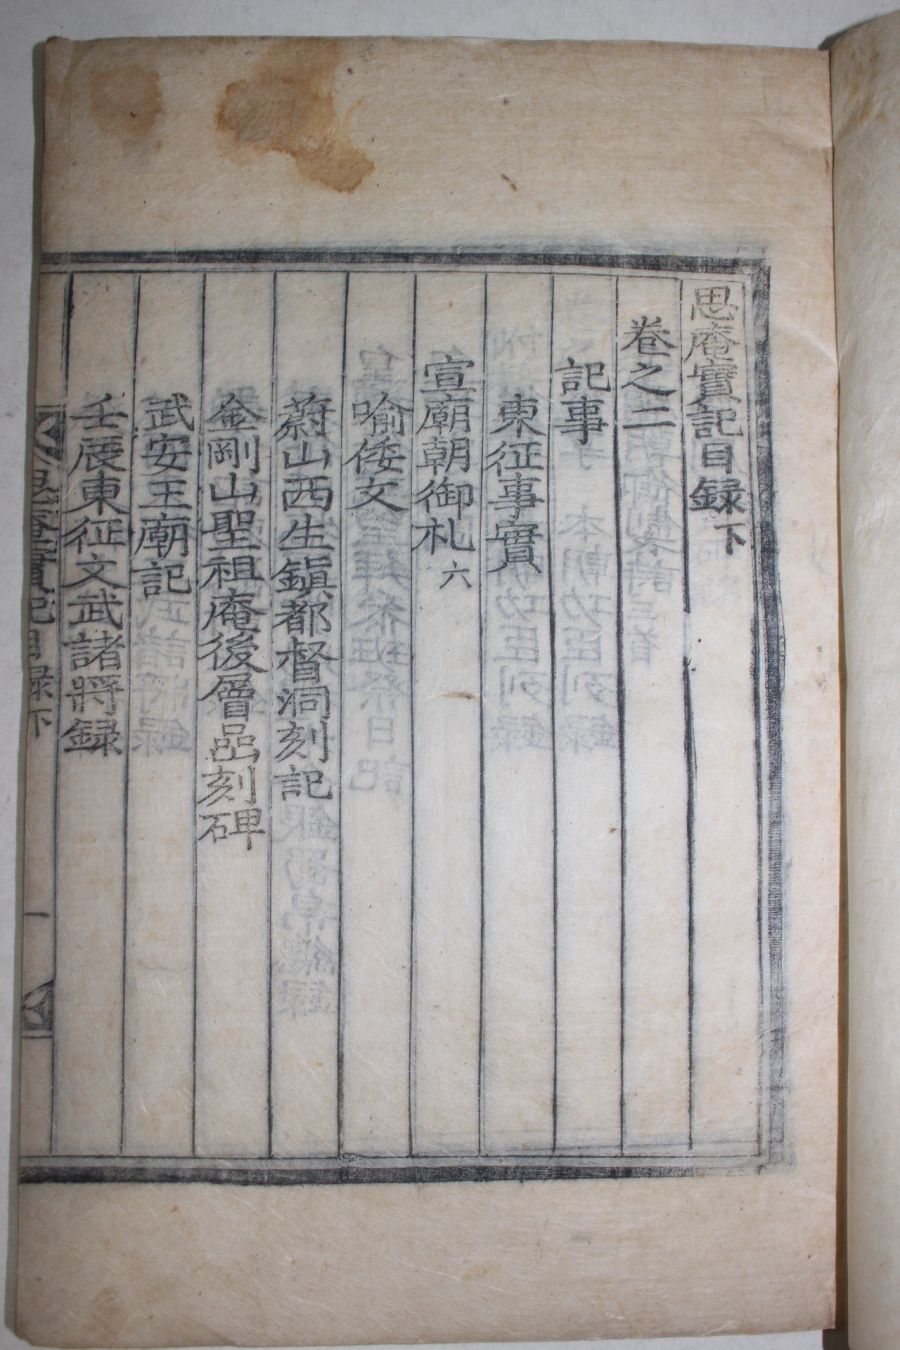 思庵實記目錄下
卷之二
記事
東征事實
宣廟朝御札六
喻倭文
蔚山西生鎭都督洞刻記
金剛山聖祖庵後層嵒刻碑
武安王廟記
壬辰東征文武諸將錄
思庵實記目錄下
一